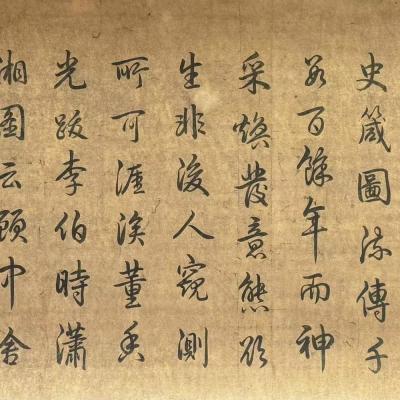 史箴圖流傳千
數百餘年而神
采煥發意態欲
生非後人窺測
所可涯涘董香
光跋李伯時瀟
湘圖云顧中舍